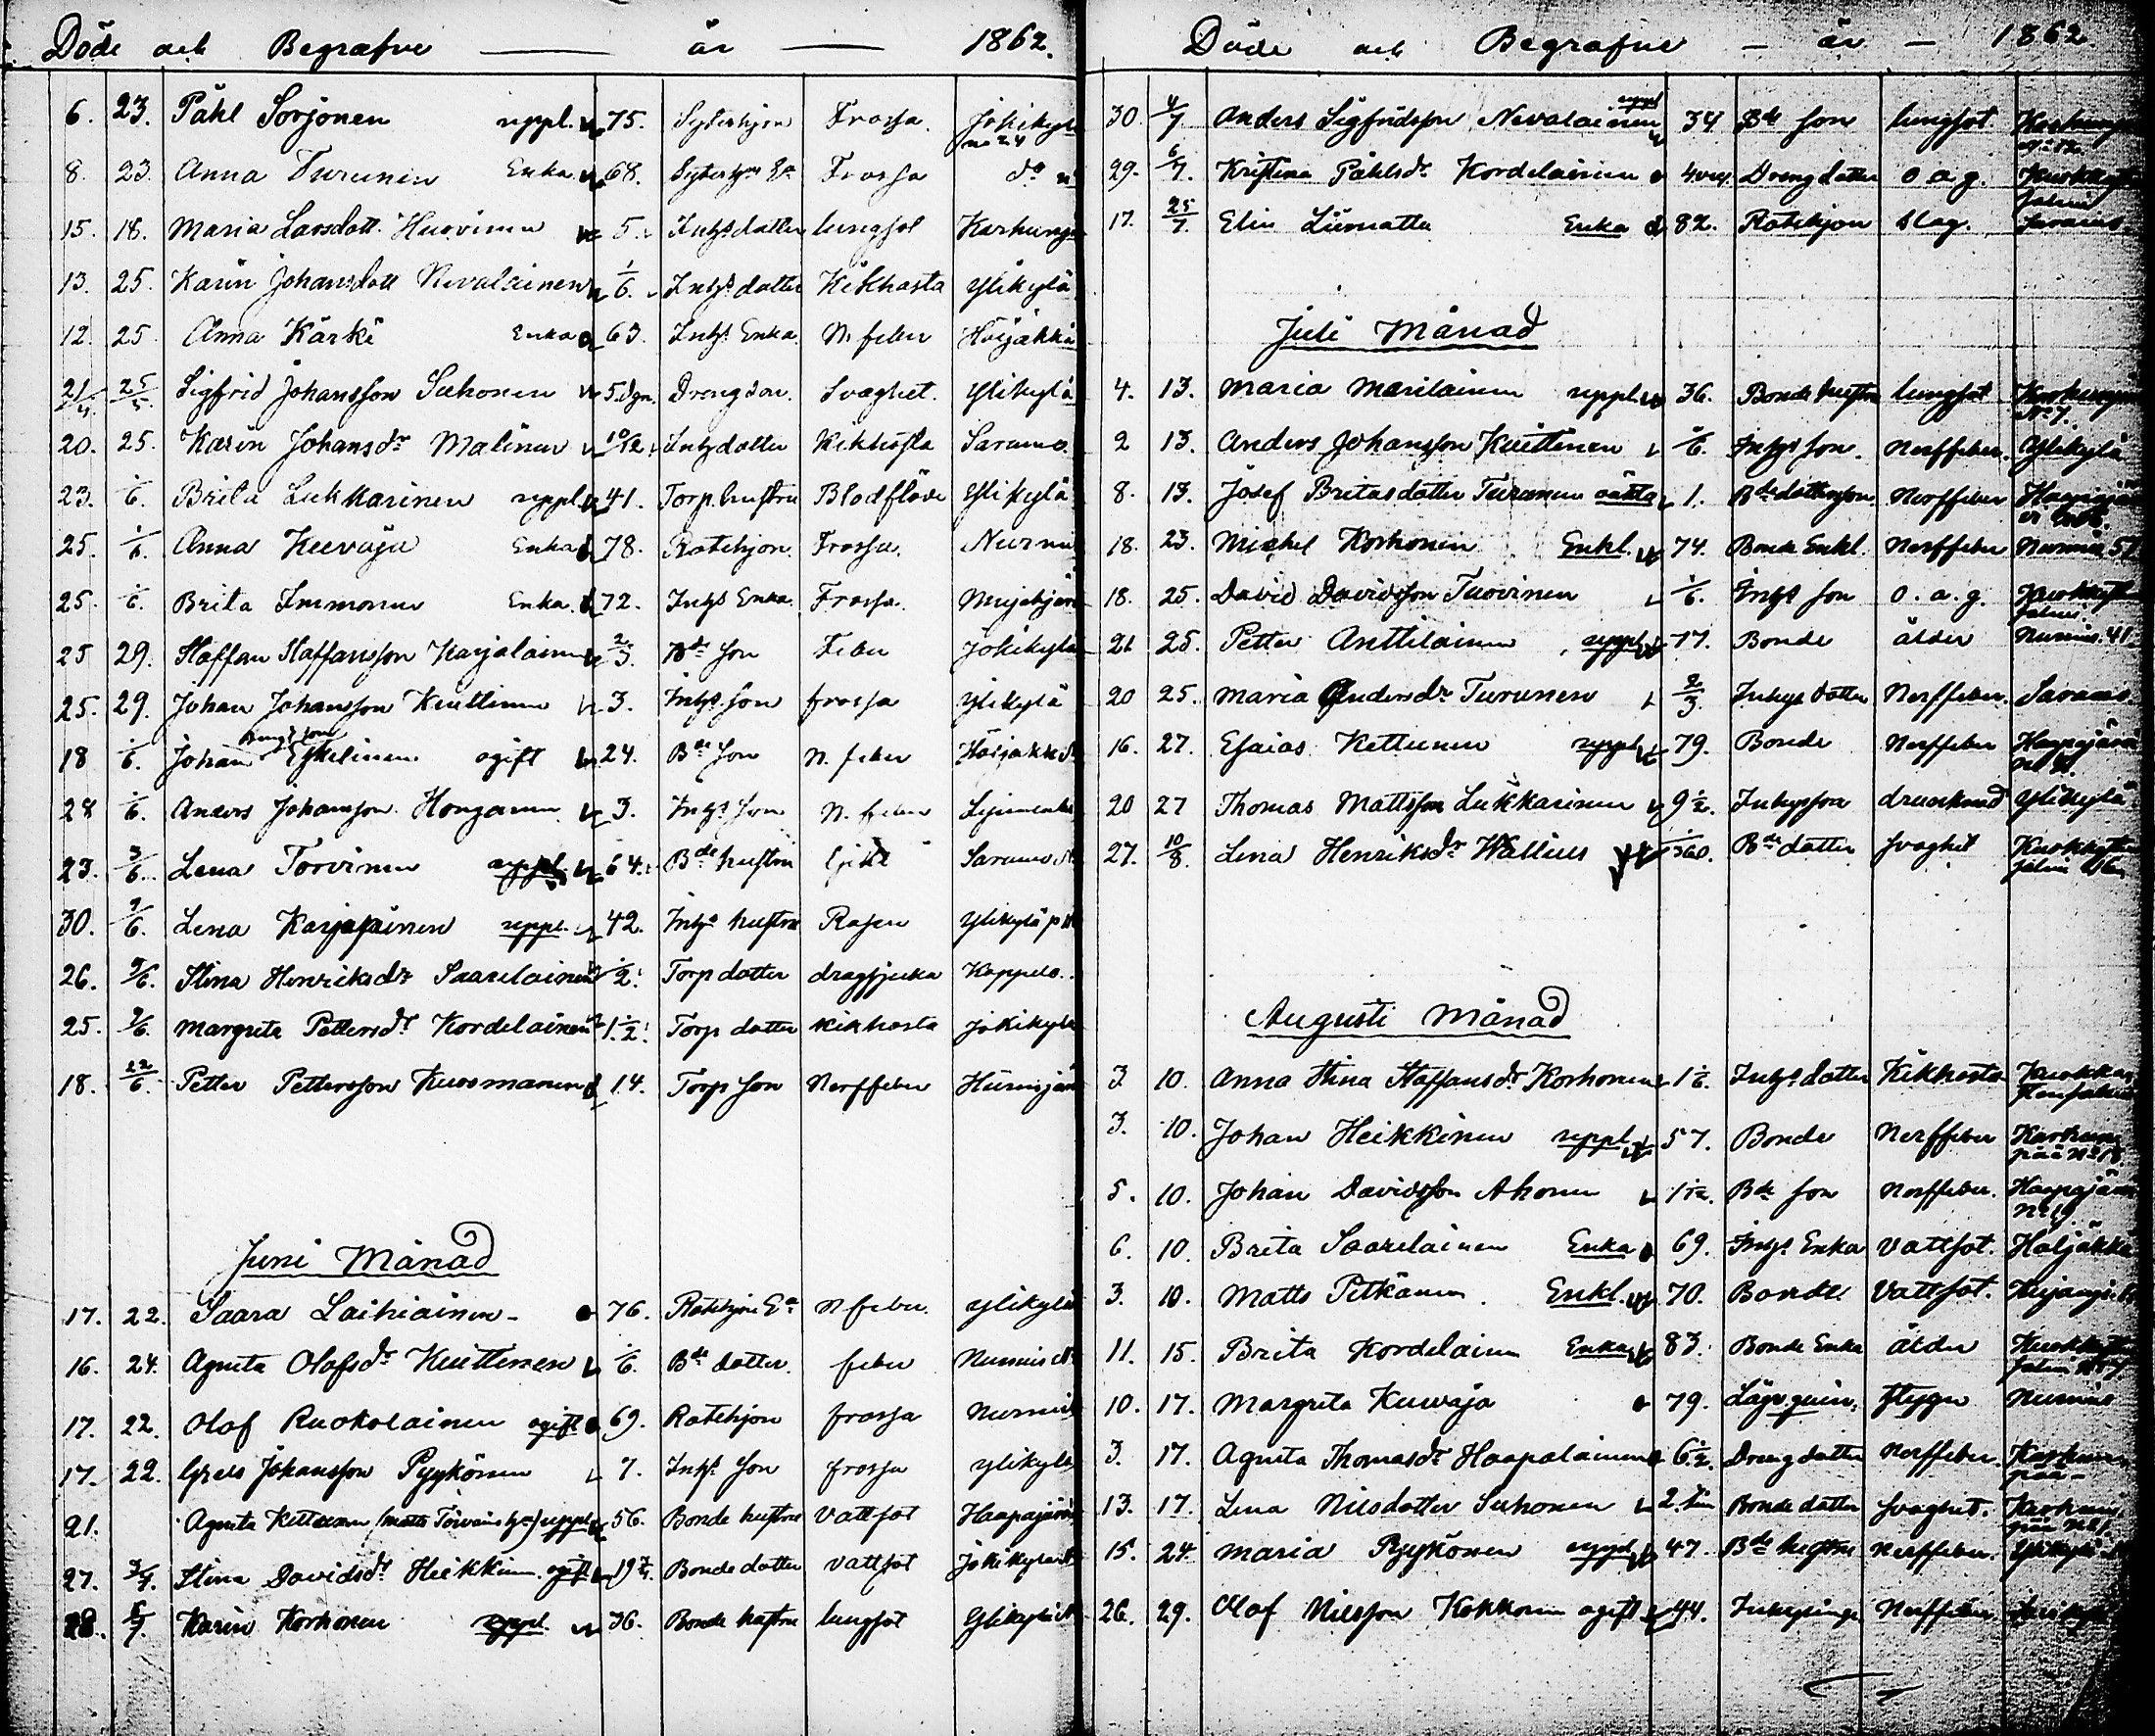 Döde och Begrafne — år — 1862.
6. 23. Påhl Sorjonen uppl. 75. Sytinhjon Frossa. Jokikylä no 24
8. 23. Anna Turunen Enka. 68. Frossa do
15. 18. Maria Larsdott. Huovinen 5. Inhs dotter lungsot Karhunp
13. 25. Karin Johansdott Nevalainen 1/6. Inhs dotter Kikhosta Ylikylä
12. 25. Anna Kärki Enka 63. Inhs Enka. N. feber Höljäkkä
21/4. 25/5. Sigfrid Johansson Suhonen 5. dgr. Dreng son. Svaghet. Ylikylä
20. 25. Karin Johansdr Malinen 10/12. Inhs dotter Kikhosta Saramo.
23. 1/6. Brita Lukkarinen uppl. 41. Torp. hustru Blodflöde Ylikylä
25. 1/6. Anna Keevaja Enka 78. Rotehjon. Frossa. Nurm
25. 1/6. Brita Immonen Enka. 72. Inhs Enka. Frossa. Mujejärv
25 29. Staffan Staffansson Karjalainen 2/3. Bde son Feber Jokikylä
25. 29. Johan Johansson Kuittinen 3. Inhs. son frossa Ylikylä
18 1/6. Johan Bengtsson Eskelinen ogift 24. Bde son N. feber Höljäkkä
28 1/6. Anders Johansson Honganen 3. Inhs son N. feber
23. 3/6. Lena Torvinen uppl. 64. Bde hustru Gikt Saramo
30. 9/6. Lena uppl. 42. Inhs hustru Rosen Ylikylä
26. 9/6. Stina Henriksdr Saarelainen 1/2. Torp dotter dragsjuka Koppelo.
25. 9/6. Margreta Pettersdr Kordelainen 1 1/2. Torp dotter kikhosta Jokikylä
18. 22/6. Petter Pettersson Kuosmanen 14. Torp son Nerffeber
Juni Månad
17. 22. Saara Laihiainen 76. Rotehjon N feber. Ylikylä
16. 24. Agneta Olofsdr Kuittinen 1/6. Bde dotter. feber Nurmis
17. 22. Olof Ruokolainen ogift 69. Rotehjon frossa Nurmis
17. 22. Grels Johansson Pyykönen 7. Inhs son frossa Ylikylä
21. Agneta Kettunen (Matts hu) uppl. 56. Bonde hustru Vattsot Haapajärvi
27. 3/7. Stina Davidsdr Heikkinen. ogift 19 Bonde dotter vattsot Jokikylä
28. 5/7. Karin Korhonen uppl. 36. Bonde hustru lungsot Ylikylä
Döde och Begrafne — år — 1862.
30. 4/7 Anders Sigfridsson Nevalainen uppl 34 Bde son lungsot.
29. 6/7. Kristina Påhlsdr Kordelainen Dreng dotter o a g.
17. 25/7 Elin Liimatta Enka 82. Rotehjon slag. Saramo
Juli Månad
4. 13. Maria Marilainen uppl. 36. Bonde hustru lungsot Karhunpää No 7.
2 13. Anders Johansson Kuittinen 1/6. Inhs son. Nerffeber. Ylikylä
8. 13. Josef Britasdotter Turunen oäkta 1. Bde dotterson. Nerffeber Haapajär
18. 23. Michel Korhonen Enkl. 74. Bonde Enkl. Nerffeber Nurmis 57
18. 25. David Davidsson Tuovinen 1/6. Inhs son o. a. g.
21 25. Petter Anttilainen uppl 77. Bonde ålder Nurmis. 41.
20 25. Maria Andersdr Turunen 2/3. Inhys dotter Nerffeber. Saramo.
16. 27. Esaias Kettunen uppl 79. Bonde Nerffeber Haapajärvi
20 27 Thomas Mattsson Lukkarinen 9 1/2. Inhysson drunknad Ylikylä
27. 10/8. Lena Henriksdr Wallius Bde dotter svaghet
Augusti Månad
3 10. Anna Stina Staffansdr Korhonen 1 1/6. Inhs dotter Kikhosta
3. 10. Johan Heikkinen uppl. 57. Bonde Nerffeber Karhunpää No 18.
5. 10. Johan Davidsson Ahonen 1 1/12. Bde son Nerffeber. Haapajärvi No 19.
6. 10. Brita Saarelainen Enka 69. Inhs Enka Vattsot. Höljäkkä
3. 10. Matts Pitkänen Enkl. 70. Bonde Vattsot.
11. 15. Brita Kordelainen Enka 83. Bonde Enka ålder
10. 17. Margreta Kuvaja 79. flygen Nurmis
3. 17. Agneta Thomasdr Haapalainen 6 1/2. Dreng dotter Nerffeber. Karhunpää
13. 17. Lena Nilsdotter Suhonen 2. tim Bonde dotter svaghet. Karhunpää
15. 24. Maria Pyykönen uppl. 47. Bde hustru Nerffeber. Ylikylä
26. 29. Olof Nilsson Kokkonen ogift 44. Inhysinge Nerffeber